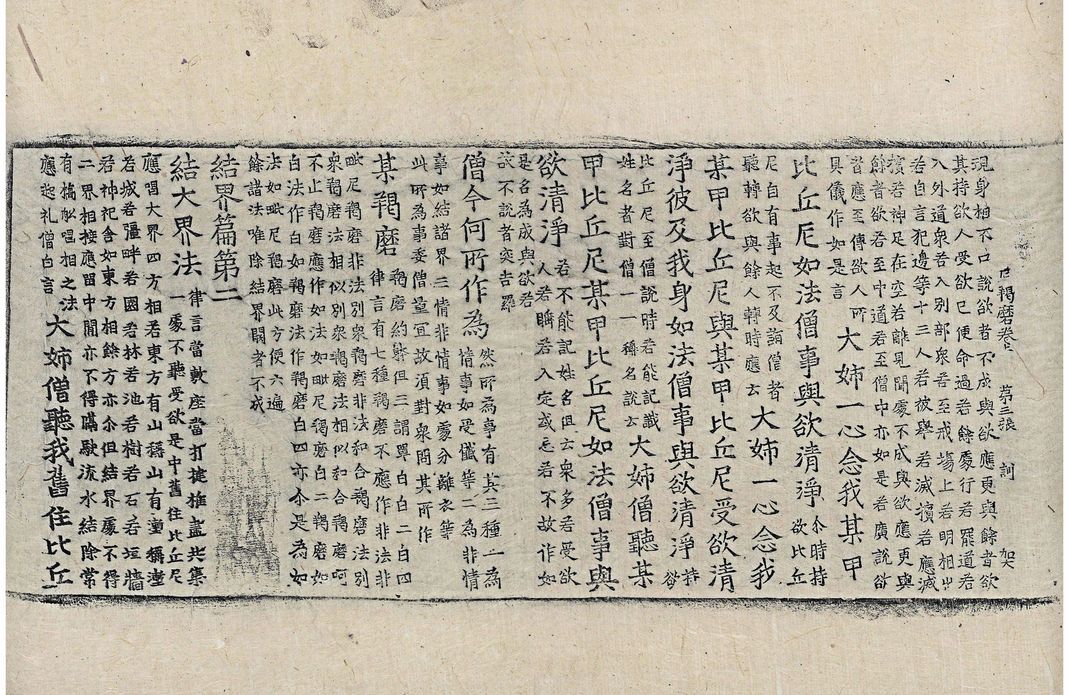 尼羯磨卷上 第三張 訶
現身相不口說欲者不成與欲應更與餘者欲
其持欲人受欲已便命過若餘處行若罷道若
入外道衆若入別部衆若至戒場上若明相出
若自言犯邊等十三人若被舉若滅擯若應滅
擯若神足在空若離見聞處不成與欲應更與
餘者欲若至中道若至僧中亦如是若廣說欲
者應至傳欲人所
具儀作如是言
大姉一心念我某甲
比丘尼如法僧事與欲清淨
尒時持
欲比丘
尼自有事起不及詣僧者
聽轉欲與餘人轉時應云
大姉一心念我
某甲比丘尼與某甲比丘尼受欲清
淨彼及我身如法僧事與欲清淨
持
欲
比丘尼至僧說時若能記識
姓名者對僧一一稱名說云
大姉僧聽某
甲比丘尼某甲比丘尼如法僧事與
欲清淨
若不能記姓名但云衆多若受欲
人若睡若入定或忘若不故作如
是名爲成與欲若
故不說者突吉羅
僧今何所作爲
然所爲事有其三種一爲
情事如受懺等二爲非情
事如結諸界三情非情事如處分離衣等
此所爲事委僧量宜故須對衆問其所作
某羯磨
羯磨約辨但三謂單白白二白四
律言有七種羯磨不應作非法非
毗尼羯磨非法別衆羯磨非法和合羯磨法別
衆羯磨法相似別衆羯磨法相似和合羯磨呵
不止羯磨應作如法如毗尼羯磨白二羯磨如
白法作白如羯磨法作羯磨白四亦尒是爲如
法如毗尼羯磨此方便六遍
餘諸法唯除結界開者不成
結界篇第二
結大界法
律言當敷座當打揵椎盡共集
一處不聽受欲是中舊住比丘尼
應唱大界四方相若東方有山稱山有壍稱壍
若城若疆畔若園若林若池若樹若石若垣牆
若神祀舍如東方相餘方亦尒但結界處不得
二界相接應留中間亦不得隔駛流水結除常
有橋舡唱相之法
應起礼僧白言
大姉僧聽我舊住比丘